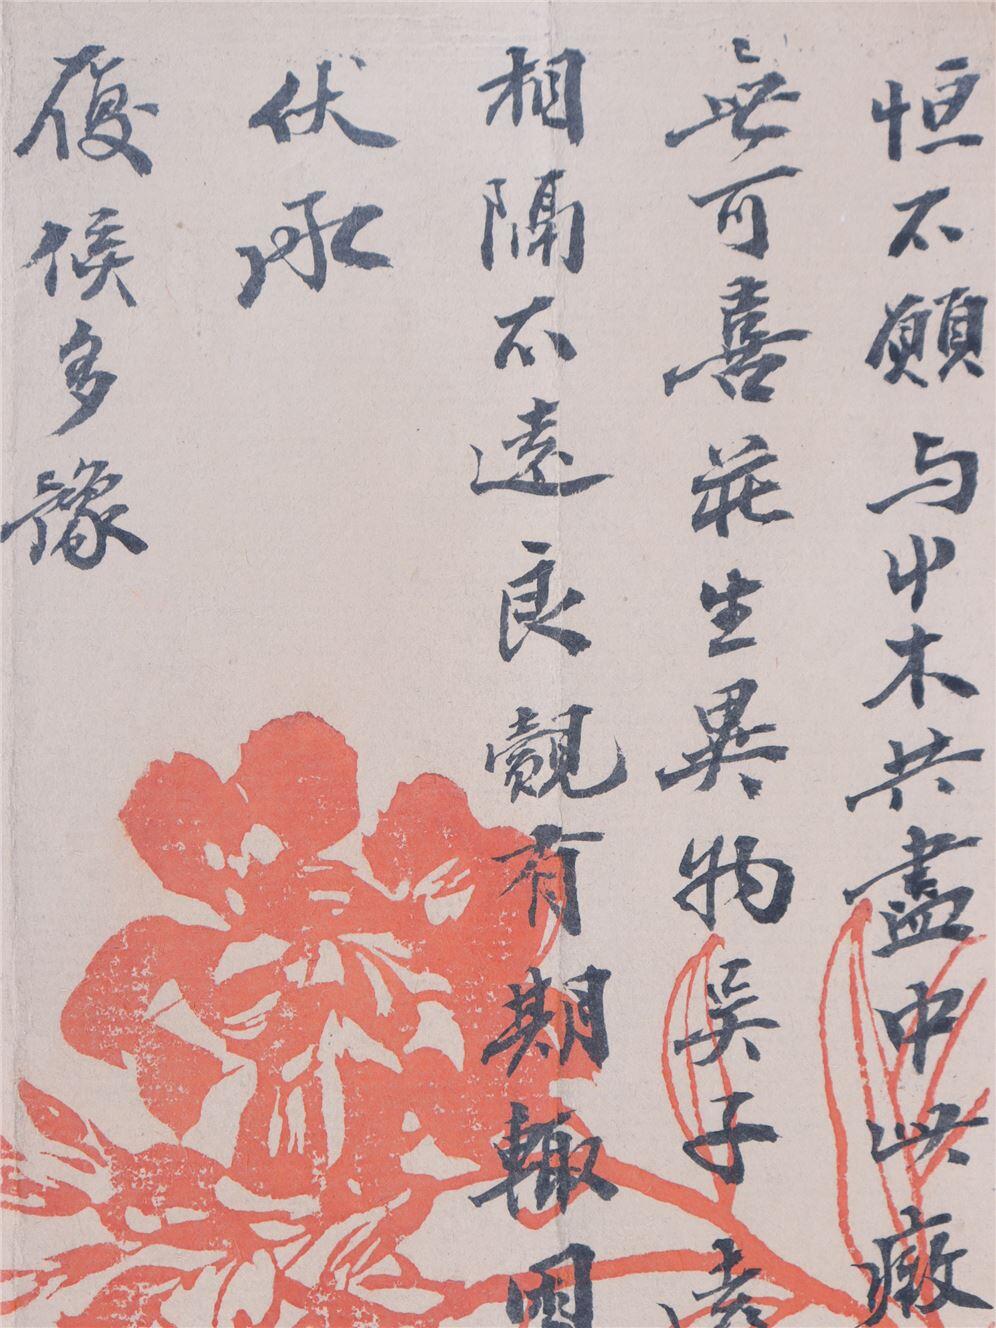 恒不願与屮木共盡中此
無可喜荘生異物吳子
相隔不遠良覿有期輙因
伏承
履候多豫